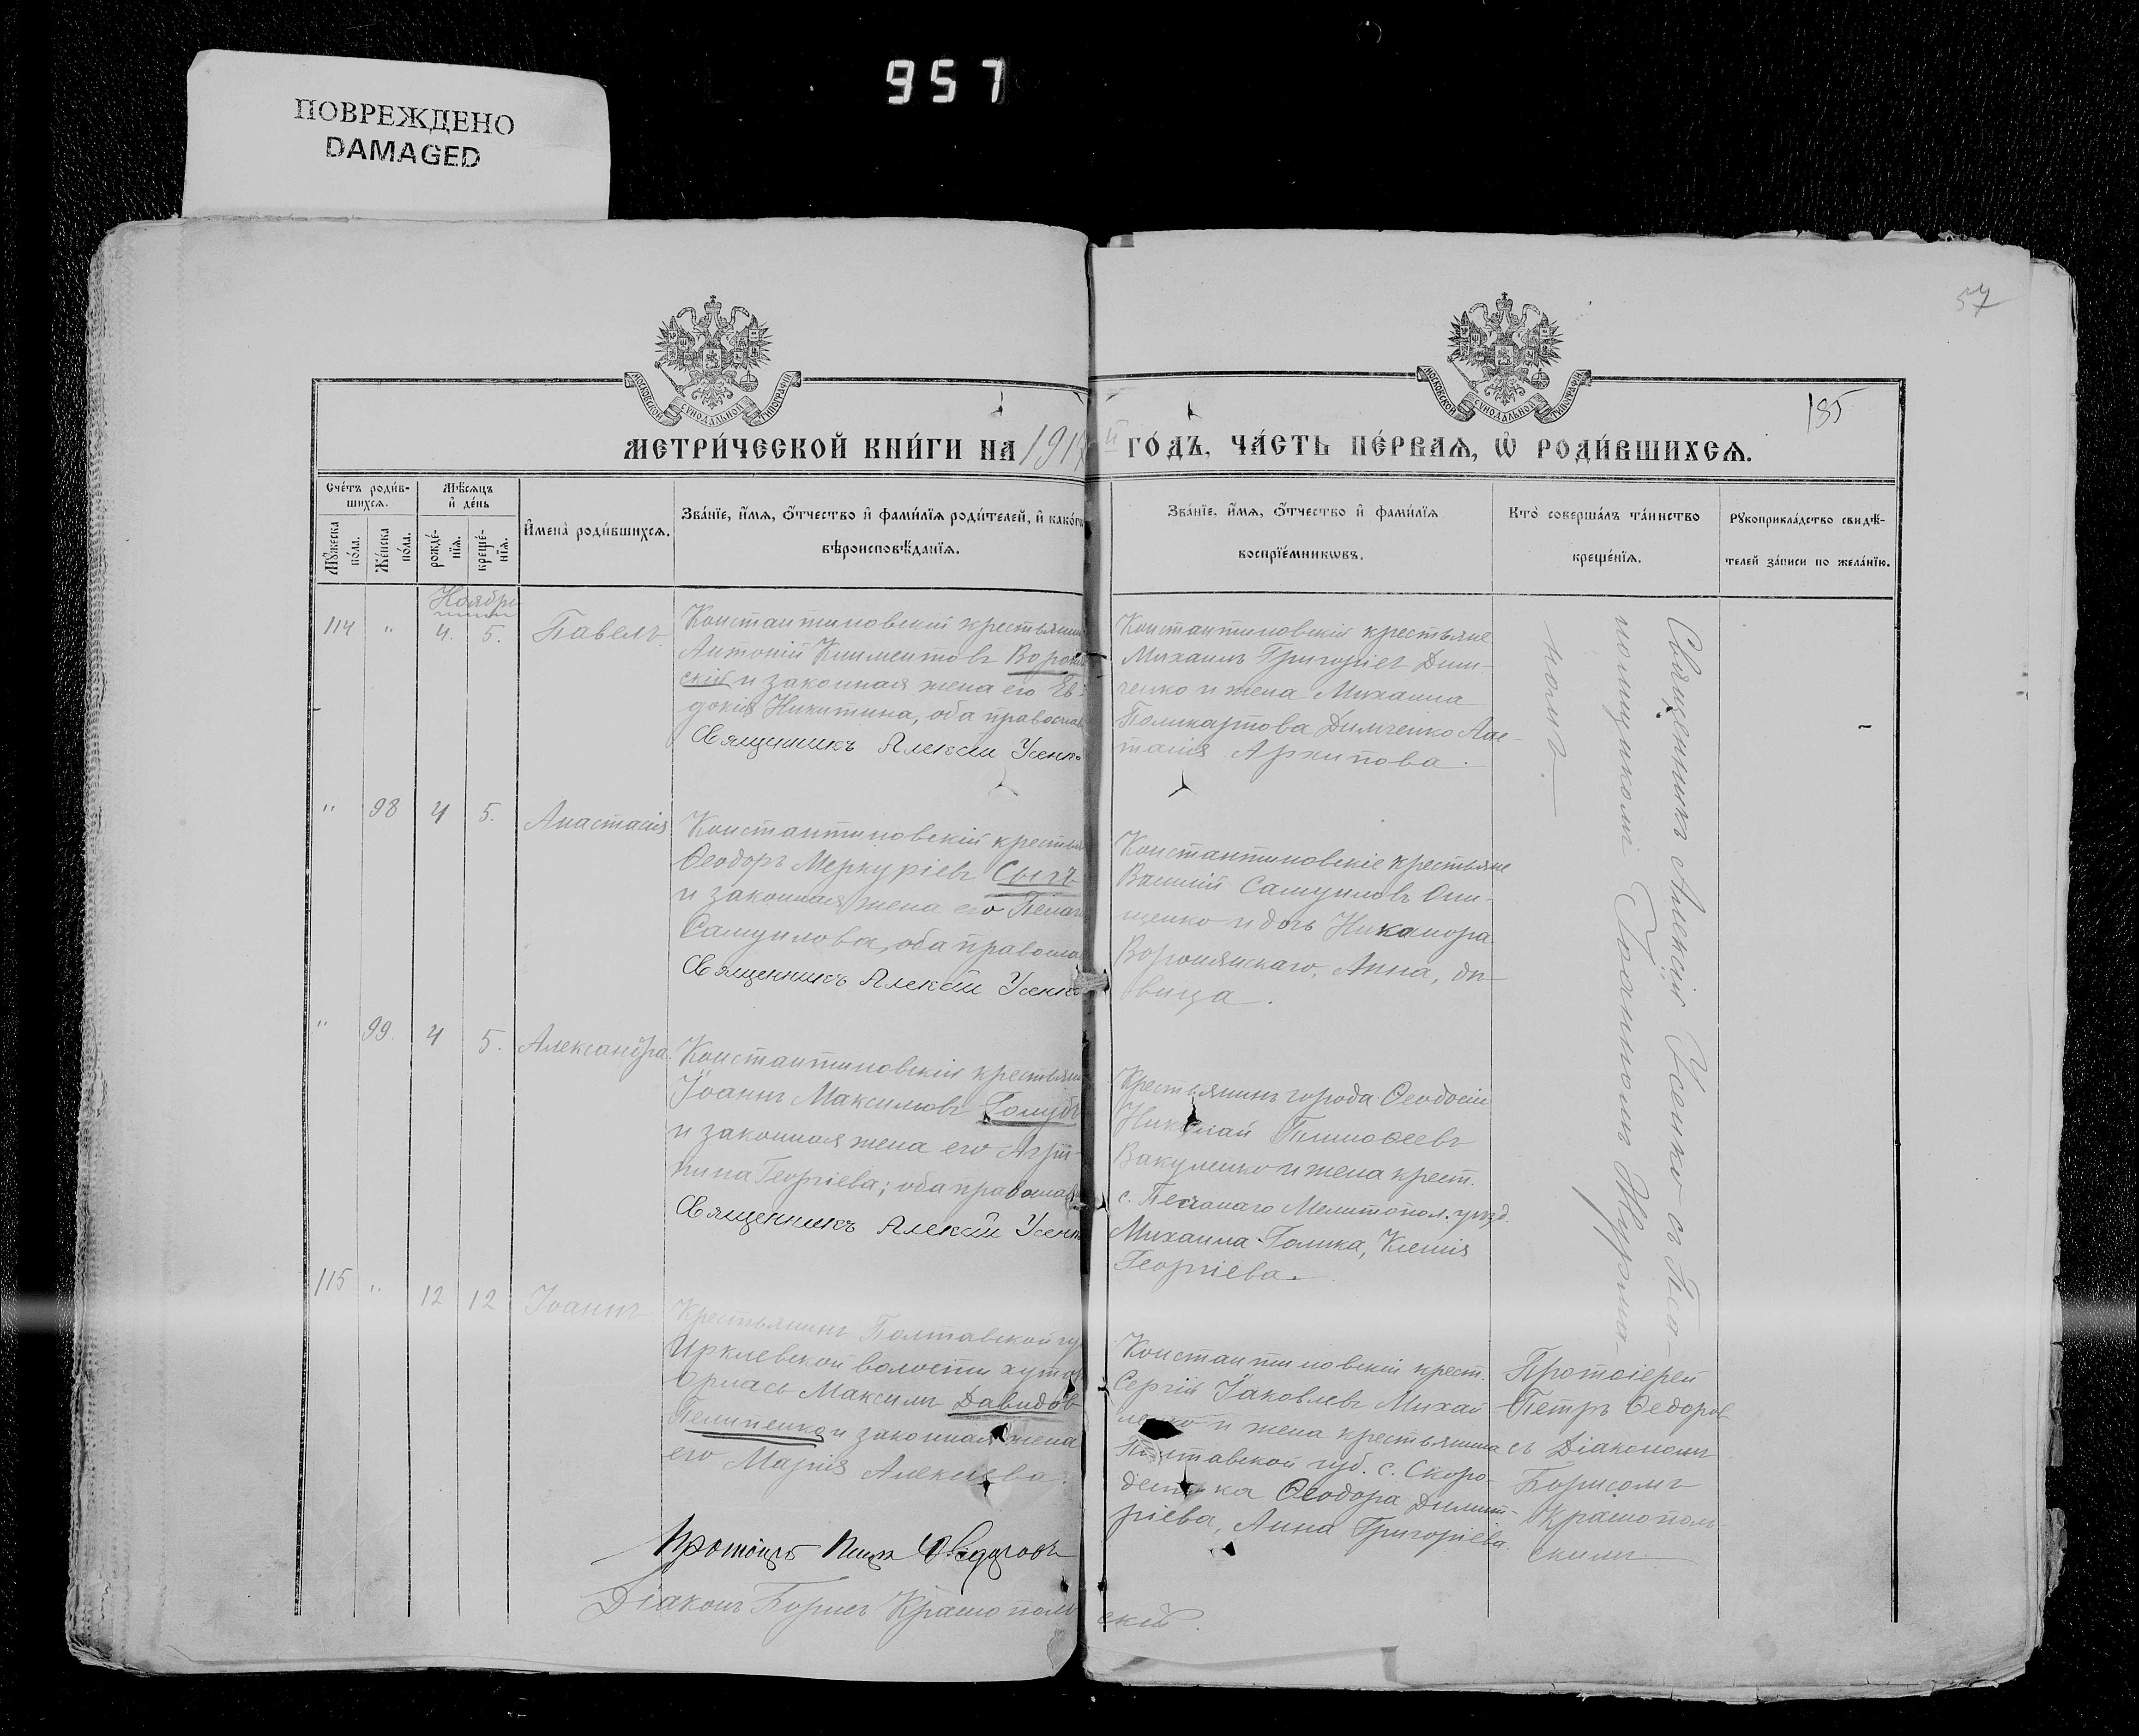 957
ПОВРЕЖДЕНО
DAMAGED
57
185
МОСКОВСКОЙ СУНОДАЛЬНОЙ ТИПОГРАФІИ
МОСКОВСКОЙ СУНОДАЛЬНОЙ ТИПОГРАФІИ
МЕТРИ́ЧЕСКОЙ КНИ́ГИ НА 1917 й ГО́ДЪ, ЧА́СТЬ ПЕ́РВАѦ, Ѽ РОДИ́ВШИХСѦ.
Сче́тъ роди́в-
шихсѧ.
Мꙋжеска
по́ла.
Же́нска
по́ла.
Мѣ́сѧцъ
и҆ де́нь
рожде́-
нїѧ.
креще́-
нїѧ.
И҆мена̀ роди́вшихсѧ.
Зва́нїе, и҆́мѧ, ѻ҆́тчество и҆ фами́лїѧ роди́телей, и҆ како́гѡ
вѣроисповѣ́данїѧ.
Зва́нїе, и҆́мѧ, ѻ҆́тчество и҆ фами́лїѧ
воспрїе́мникѡвъ.
Кто̀ соверша́лъ та́инство
креще́нїѧ.
Рꙋкоприкла́дство свидѣ́-
телей за́писи по жела́нїю.
Ноябрь
114 " 4. 5. Павелъ
Константиновскій крестьянин
Антоній Климентовъ Ворон
скій и законная жена его Ев-
докія Никитина, оба православ
Священникъ Алексій Усенко
Константиновскіе крестьяне
Михаилъ Григоріевъ Дим-
ченко и жена Михаила
Поликарпова Димченко Анас-
тасія Архипова.
Священникъ Алексій Усенко съ Пса-
ломщикомъ Іоанномъ
" 98 4 5. Анастасія
Константиновскій крестьян
Ѳеодоръ Меркуріевъ Сыгъ
и законная жена его Пелаг
Самуилова, оба православ
Священникъ Алексій Усенко
Константиновскіе крестьяне
Василій Самуиловъ Они-
щенко и дочь Никанора
Воронянскаго, Анна, дѣ-
вица.
" 99. 4 5. Александра.
Константиновскій крестьян
Іоаннъ Максимовъ Голубъ
и законная жена его Агрип-
пина Георгіева; оба православ
Священникъ Алексій Усенко
Крестьянинъ города Ѳеодосіи
Николай Тимоѳеевъ
Вакуленко и жена крест.
с. Песчанаго Мелитопол. уѣзд.
Михаила Голика, Ксенія
Георгіева.
115 " 12 12 Іоаннъ
Крестьянинъ Полтавской гу
Ирклевской волости хутор
Максимъ Давидов
Пелипенко и законная жена
его Марія Алексѣева.
Константиновскій крест.
Сергій Іаковлевъ Михай-
ленко и жена крестьянина
Полтавской губ. с. Скоро-
Ѳеодора Димит-
ріева, Анна Григоріева.
Протоіерей
Петръ Ѳедоров
съ Діакономъ
Борисомъ
Краснополь-
скимъ.
Протоіерей Петръ
Діаконъ Борисъ Краснополь скій.